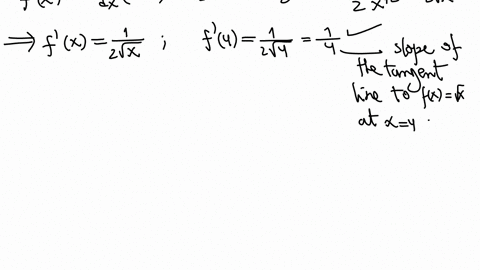 ⟹ f'(x) = 1/(2√x) ; f'(4) = 1/(2√4) = 1/4 ✓
slope of
the tangent
line to f(x)=√x
at x=4.